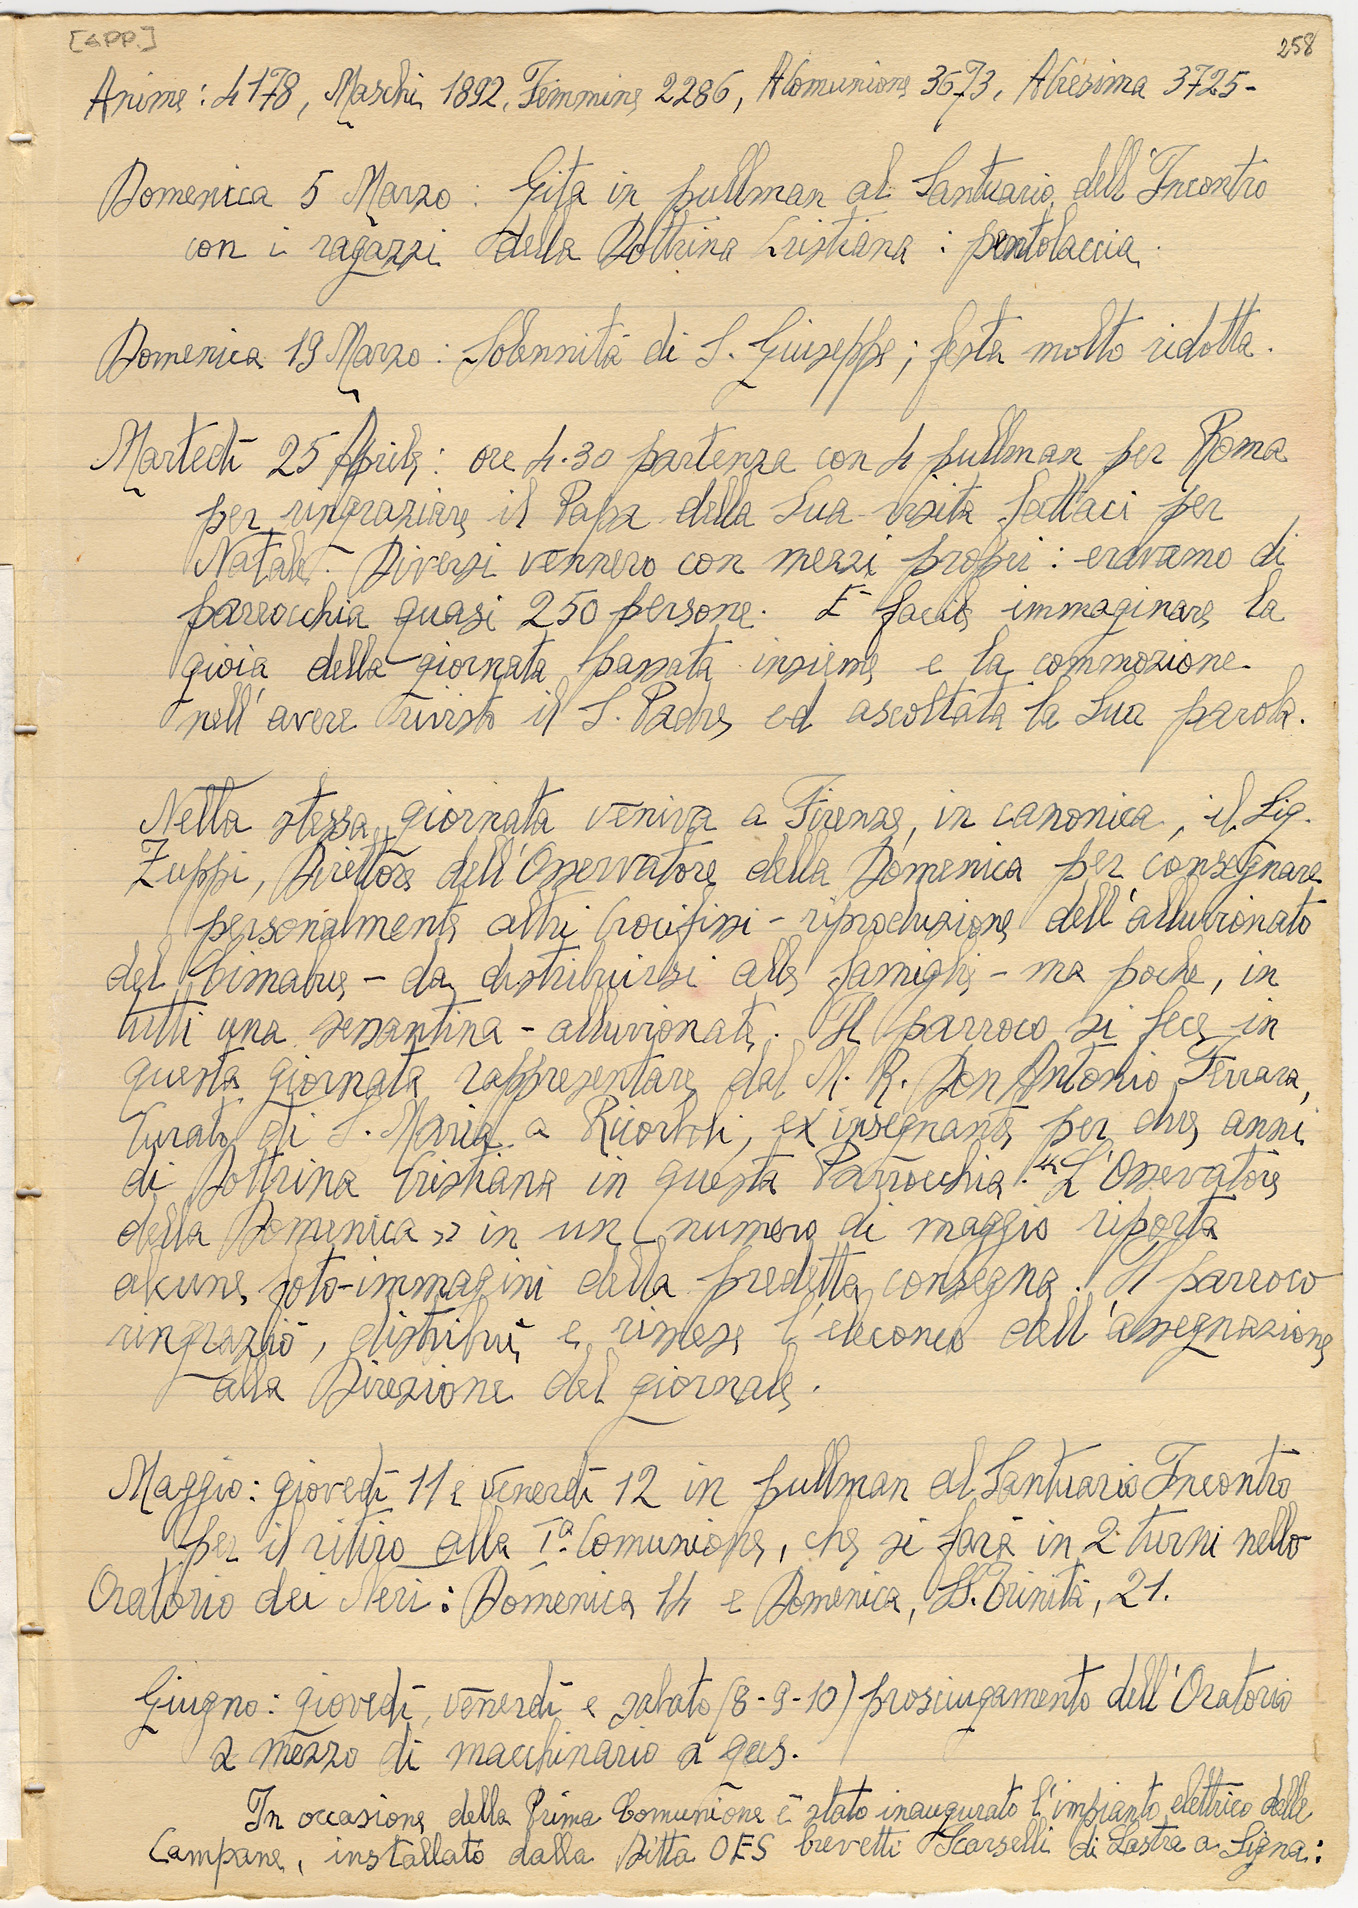 [SPP.]
258
Anime: 4178, Maschi 1892, Femmine 2286, A Comunione 3673, A Cresima 3725-
Domenica 5 Marzo: Gita in pullman al Santuario dell'Incontro
con i ragazzi della Dottrina Cristiana: pentolaccia.
Domenica 19 Marzo: Solennità di S. Giuseppe; festa molto ridotta.
Martedì 25 Aprile: ore 4.30 partenza con 4 pullman per Roma
per ringraziare il Papa della Sua visita fattaci per
Natale. Diversi vennero con mezzi propri: eravamo di
parrocchia quasi 250 persone. È facile immaginare la
gioia della giornata passata insieme e la commozione
nell'avere rivisto il S. Padre ed ascoltata la Sua parola.
Nella stessa giornata veniva a Firenze, in canonica, il Sig.
Zuppi, Direttore dell'Osservatore della Domenica per consegnare
personalmente altri Crocifissi - riproduzione dell'alluvionato
del Cimabue - da distribuirsi alle famiglie - ma poche, in
tutti una sessantina - alluvionate. Il parroco si fece in
questa giornata rappresentare dal M. R. Don Antonio Ferrara,
Curato di S. Maria a Ricorboli, ex insegnante per due anni
di Dottrina Cristiana in questa Parrocchia. "L'Osservatore
della Domenica" in un numero di maggio riporta
alcune foto-immagini della predetta consegna. Il parroco
ringraziò, distribuì e rimese l'eleconco dell'assegnazione
alla Direzione del giornale.
Maggio: giovedì 11 e venerdì 12 in pullman al Santuario Incontro
per il ritiro alla Iª Comunione, che si farà in 2 turni nello
Oratorio dei Neri: Domenica 14 e Domenica, SS. Trinità, 21.
Giugno: giovedì, venerdì e sabato (8-9-10) prosciugamento dell'Oratorio
a mezzo di macchinario a gas.
In occasione della Prima Comunione è stato inaugurato l'impianto elettrico delle
Campane, installato dalla Ditta OES brevetti Scarselli di Lastra a Signa: